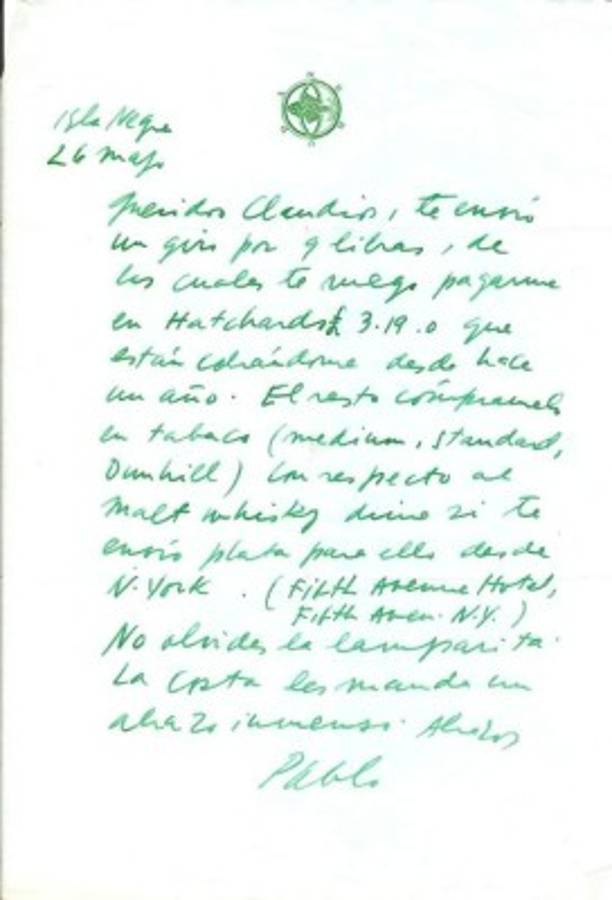 Isla Negra
26 mayo
Queridos Claudios, te envío
un giro por 9 libras, de
las cuales te ruego pagarme
en Hatchards £ 3.19.0 que
están cobrándome desde hace
un año. El resto cómpramelo
en tabaco (medium, standard,
Dunhill) con respecto al
Malt whisky dime si te
envío plata para ello desde
N. York. (Fifth Avenue Hotel,
Fifth Aven. N.Y.)
No olvides la lamparita.
La Costa les manda un
abrazo inmenso. Abrazos
Pablo